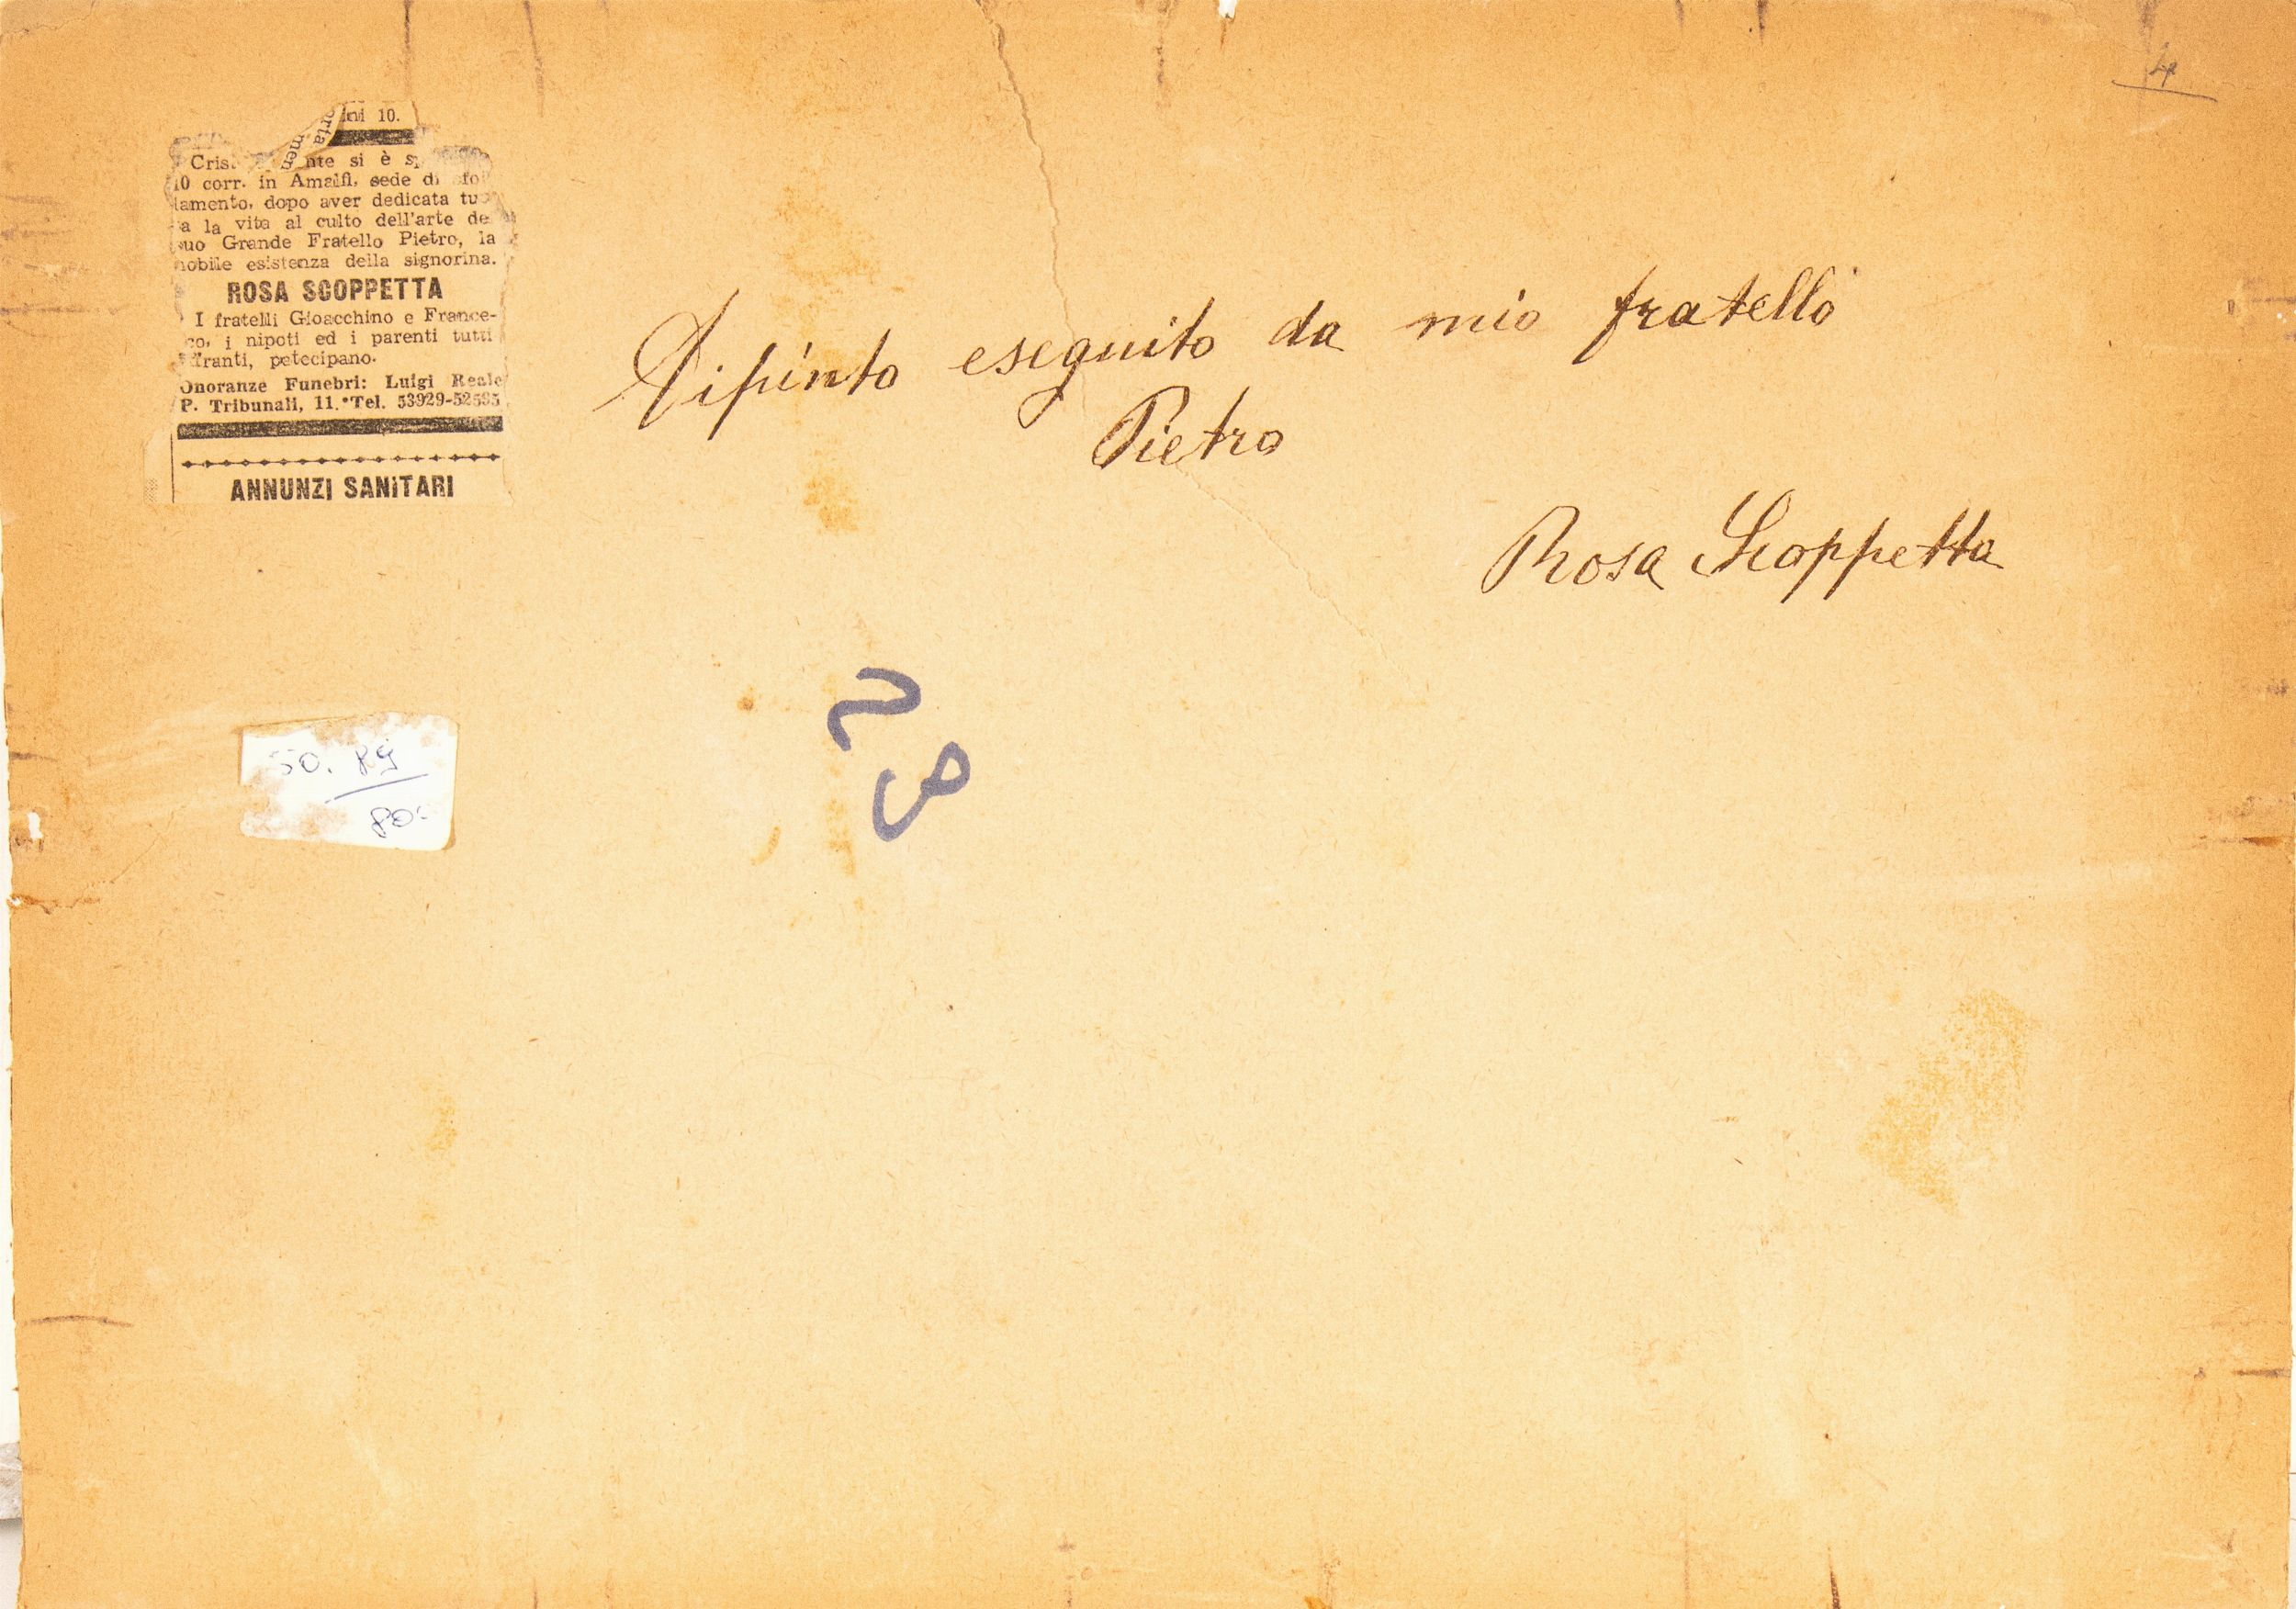 4
ini 10.
orta
men
Cris nte si è s
10 corr. in Amalfi, sede di sfol
lamento, dopo aver dedicata tu
a la vita al culto dell'arte de
suo Grande Fratello Pietro, la
nobile esistenza della signorina.
ROSA SCOPPETTA
I fratelli Gioacchino e France-
co, i nipoti ed i parenti tutti
affranti, patecipano.
Onoranze Funebri: Luigi Reale
P. Tribunali, 11. Tel. 53929-52595
ANNUNZI SANITARI
Dipinto eseguito da mio fratello
Pietro
Rosa Scoppetta
50. 89
80